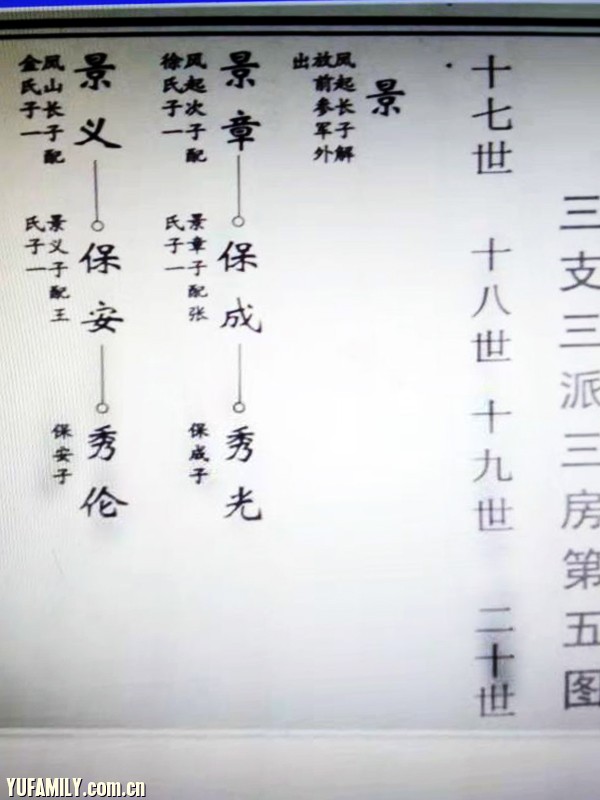 三支三派三房第五图
十七世
十八世
十九世
二十世
景
凤起长子解
放前参军外
出
景章
凤起次子配
徐氏子一
保成
景章子配张
氏子一
秀光
保成子
景义
凤山长子配
金氏子一
保安
景义子配王
氏子一
秀伦
保安子
YUFAMILY.com.cn